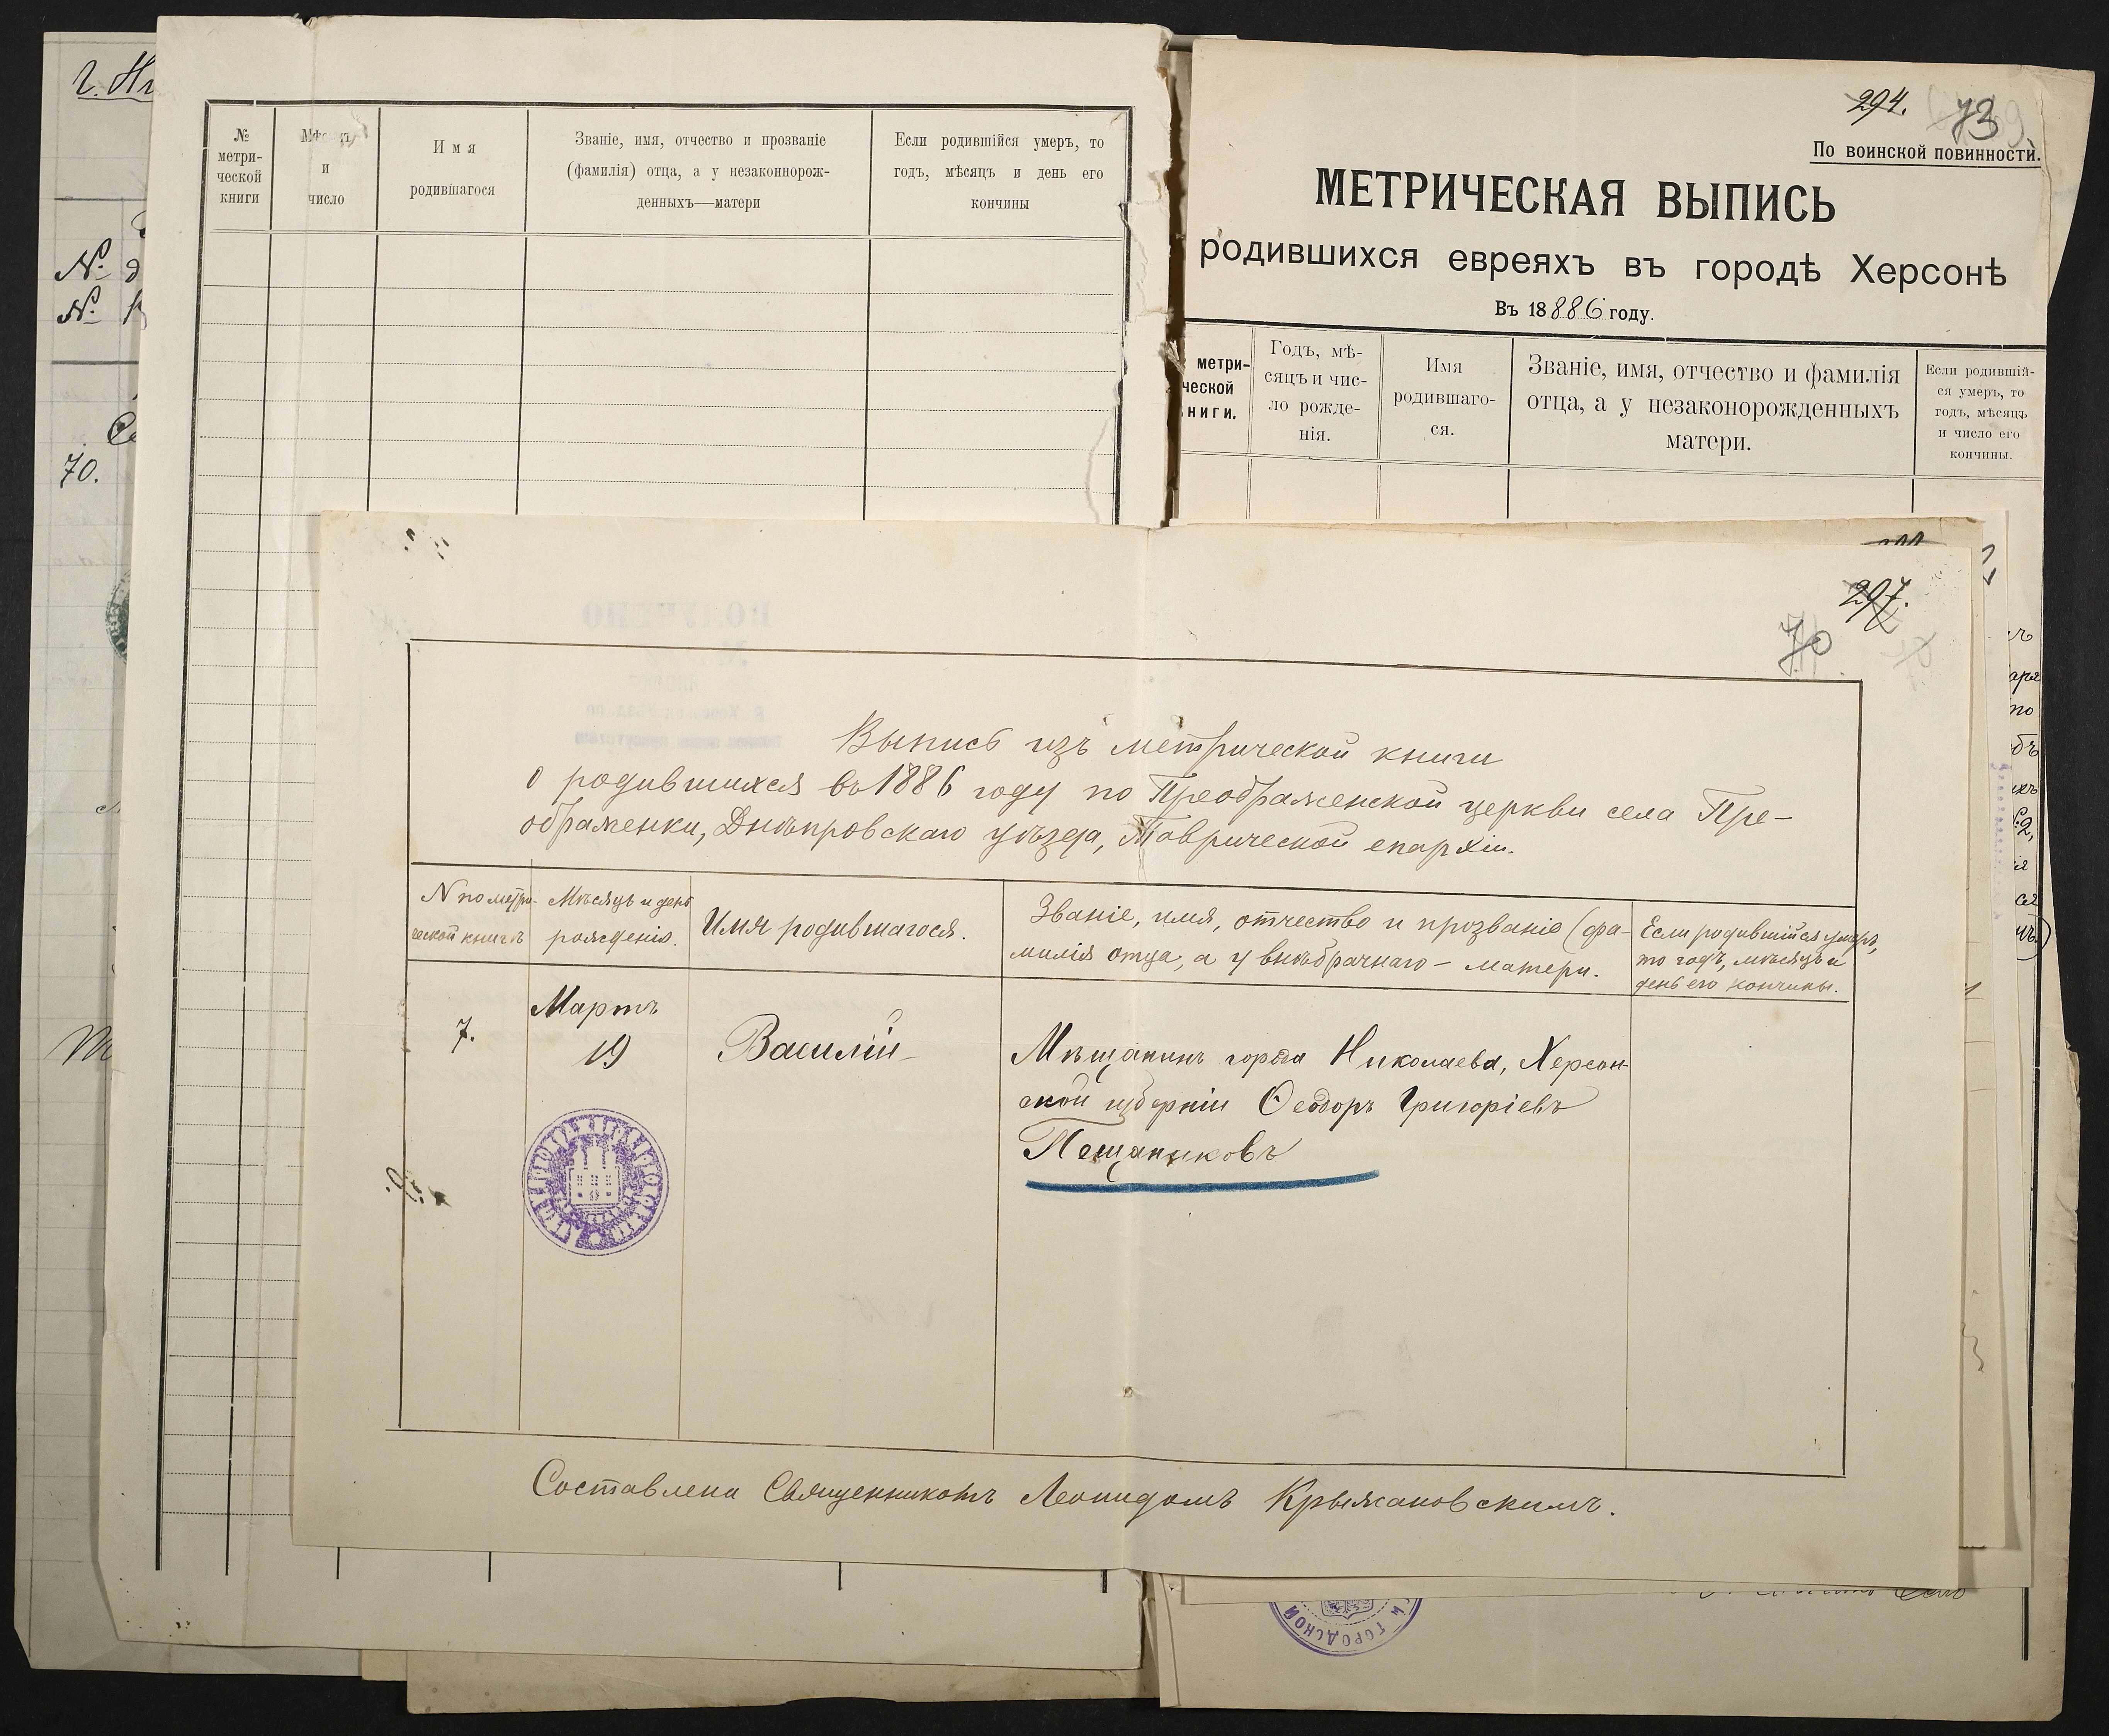 №
метри-
ческой
книги
и
число
Имя
родившагося
Званіе, имя, отчество и прозваніе
(фамилія) отца, а у незаконнорож-
денныхъ—матери
Если родившійся умеръ, то
годъ, мѣсяцъ и день его
кончины
70.
294. 73
По воинской повинности.
МЕТРИЧЕСКАЯ ВЫПИСЬ
родившихся евреяхъ въ городѣ Херсонѣ
Въ 18886 году.
метри-
ческой
ниги.
Годъ, мѣ-
сяцъ и чис-
ло рожде-
нія.
Имя
родившаго-
ся.
Званіе, имя, отчество и фамилія
отца, а у незаконорожденныхъ
матери.
Если родившій-
ся умеръ, то
годъ, мѣсяцъ
и число его
кончины.
297.
70
Выпись изъ метрической книги
о родившихся въ 1886 году по Преображенской церкви села Пре-
ображенки, Днѣпровскаго уѣзда, Таврической епархіи.
N по метри-
ческой книгѣ
Мѣсяцъ и день
рожденія.
Имя родившагося.
Званіе, имя, отчество и прозваніе (фа-
милія отца, а у внѣбрачнаго – матери.
Если родившійся умеръ,
то годъ, мѣсяцъ и
день его кончины.
7.
Мартъ
19
Василій
Мѣщанинъ города Николаева, Херсон-
ской губерніи Ѳеодоръ Григоріевъ
Пещаниковъ
Составлена Священникомъ Леонидомъ Крыжановскимъ.
ГОРОДСКОЙ